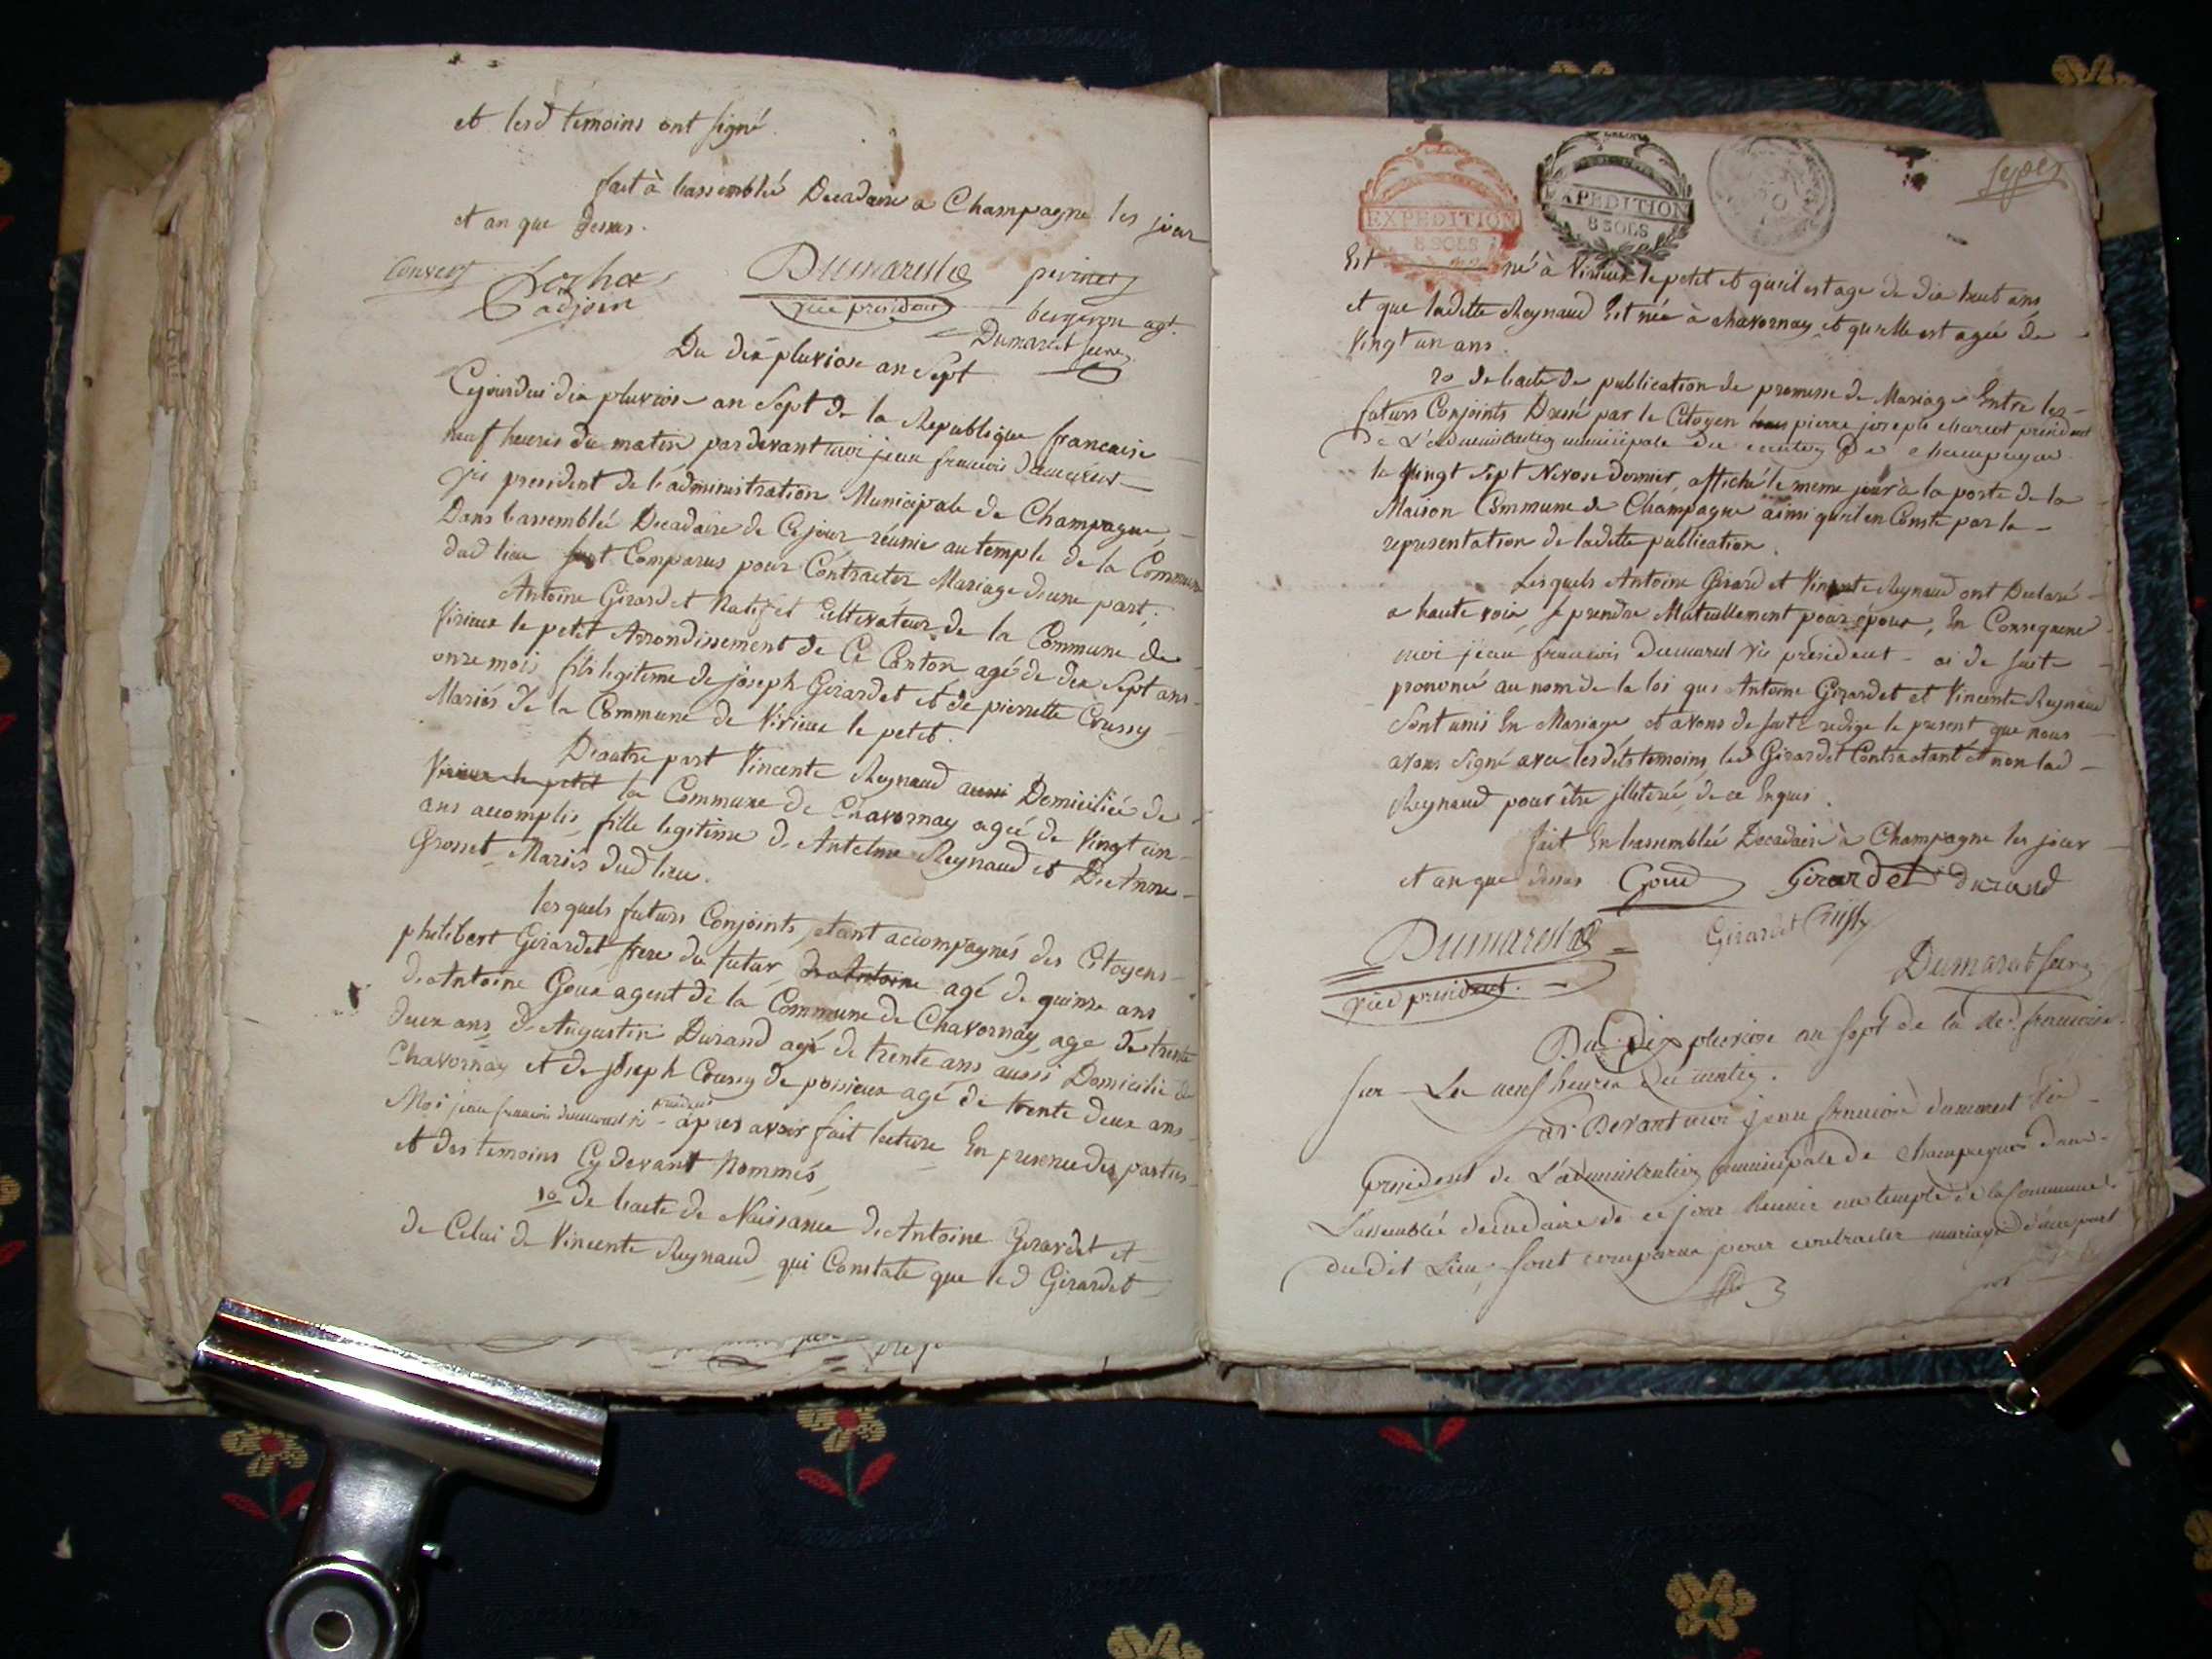 et lesd temoins ont signé.
fait à lassemblée Decadaire a Champagne les jour
et an que dessus.
Convert
adjoin
Dumarest
vice president
bergeron agt.
Dumarest secre
Du dix pluviose an Sept
Cejourdui dix pluviose an Sept de la Republique francaise
neuf heures du matin pardevant moi jean francois dumarest
vis president de l'administration Municipale de Champagne,
Dans lassemblée Decadaire de Cejour réunie au temple de la Commune
dud lieu sont Comparus pour Contracter Mariage dune part;
Antoine Girardet Natif et Cultivateur de la Commune de
Virieux le petit Arrondissement de Ce Canton agé de dix sept ans
onze mois fils legitime de joseph Girardet et de pierrette Crussy
Mariés de la Commune de Virieux le petit.
Dautre part Vincente Reynaud aussi Domiciliée de
Virieux le petit la Commune de Chavornay agée de Vingt un
ans accomplis, fille legitime d. Antelme Reynaud et D. Anne
Grosset Mariés dud lieu.
lesquels futurs Conjoints, etant accompagnés des Citoyens
philibert Girardet frere du futur, d. Antoine agé de quinze ans
d. Antoine Goux agent de la Commune de Chavornay, age de trente
deux ans, d. Augustin Durand agé de trente ans aussi Domicilié de
Chavornay et de joseph Crussy de possieux agé de trente deux ans
Moi jean francois dumarest vi president après avoir fait lecture En presence des parties
et des temoins Cy devant Nommés,
1º de lacte de Naissance d. Antoine Girardet et
de Celui de Vincente Reynaud qui Constate que led Girardet
EXPEDITION
8 SOLS
EXPEDITION
8 SOLS
Est né à Virieux le petit et quil est age de dix huit ans
et que ladette Reynaud Est née à chavornay et quelle est agée de
Vingt un ans.
2º de lacte de publication de promesse de Mariage Entre les
futurs Conjoints Dressé par le Citoyen pierre joseph charcot president
de L'administration municipale du canton de champagne
le Vingt Sept Nivose dernier, affiché le meme jour à la porte de la
Maison Commune de Champagne ainsi quil en Conste par la
representation de ladette publication.
Lesquels Antoine Girardet et Vincente Reynaud ont Declaré
a haute voix, se prendre Mutuellement pour époux, En Consequence
moi jean francois dumarest vis president ai de suite
prononcé au nom de la loi que Antoine Girardet et Vincente Reynaud
Sont unis En Mariage et avons de suite redige le present que nous
avons signé avec lesdits temoins, led Girardet Contractant et non lad
Reynaud pour être illiterée de ce Enquis.
fait En lassemblée Decadaire à Champagne les jour
et an que dessus Goud Girardet durand
Dumarest
vice president.
Girardet Crussy
Dumarest secre
Du Dix pluviose an sept de la Rep. francaise.
sur Les neuf heures du matin.
Par Devant moi jean francois dumarest vice
president de L'administration municipale de champagne dans
L'assemblée decadaire de ce jour Reunie au temple de la Commune
dudit Lieu, sont comparus pour contracter mariage d'une part